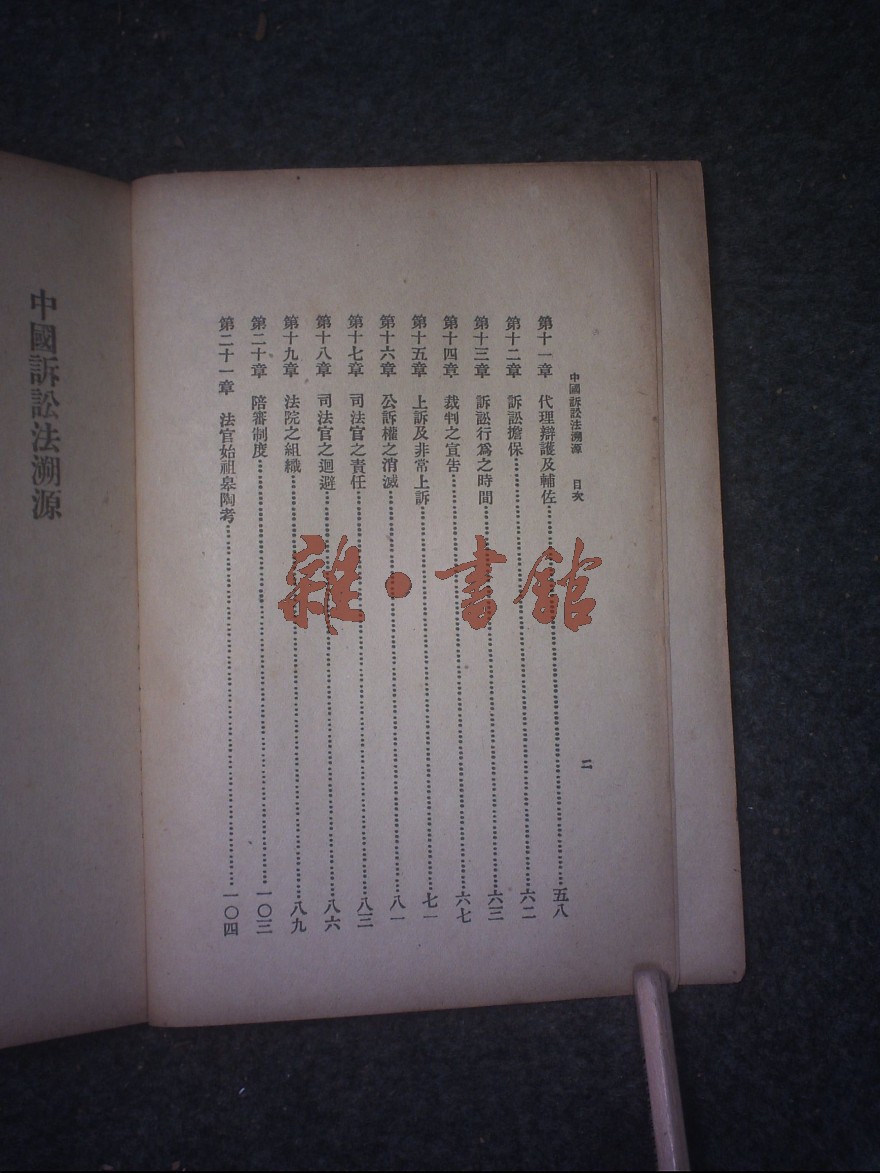 中國訴訟法溯源　目次
二
第十一章　代理辯護及輔佐……五八
第十二章　訴訟擔保……六二
第十三章　訴訟行爲之時間……六三
第十四章　裁判之宣告……六七
第十五章　上訴及非常上訴……七一
第十六章　公訴權之消滅……八一
第十七章　司法官之責任……八三
第十八章　司法官之迴避……八六
第十九章　法院之組織……八九
第二十章　陪審制度……一〇三
第二十一章　法官始祖皋陶考……一〇四
中國訴訟法溯源
雜·書館